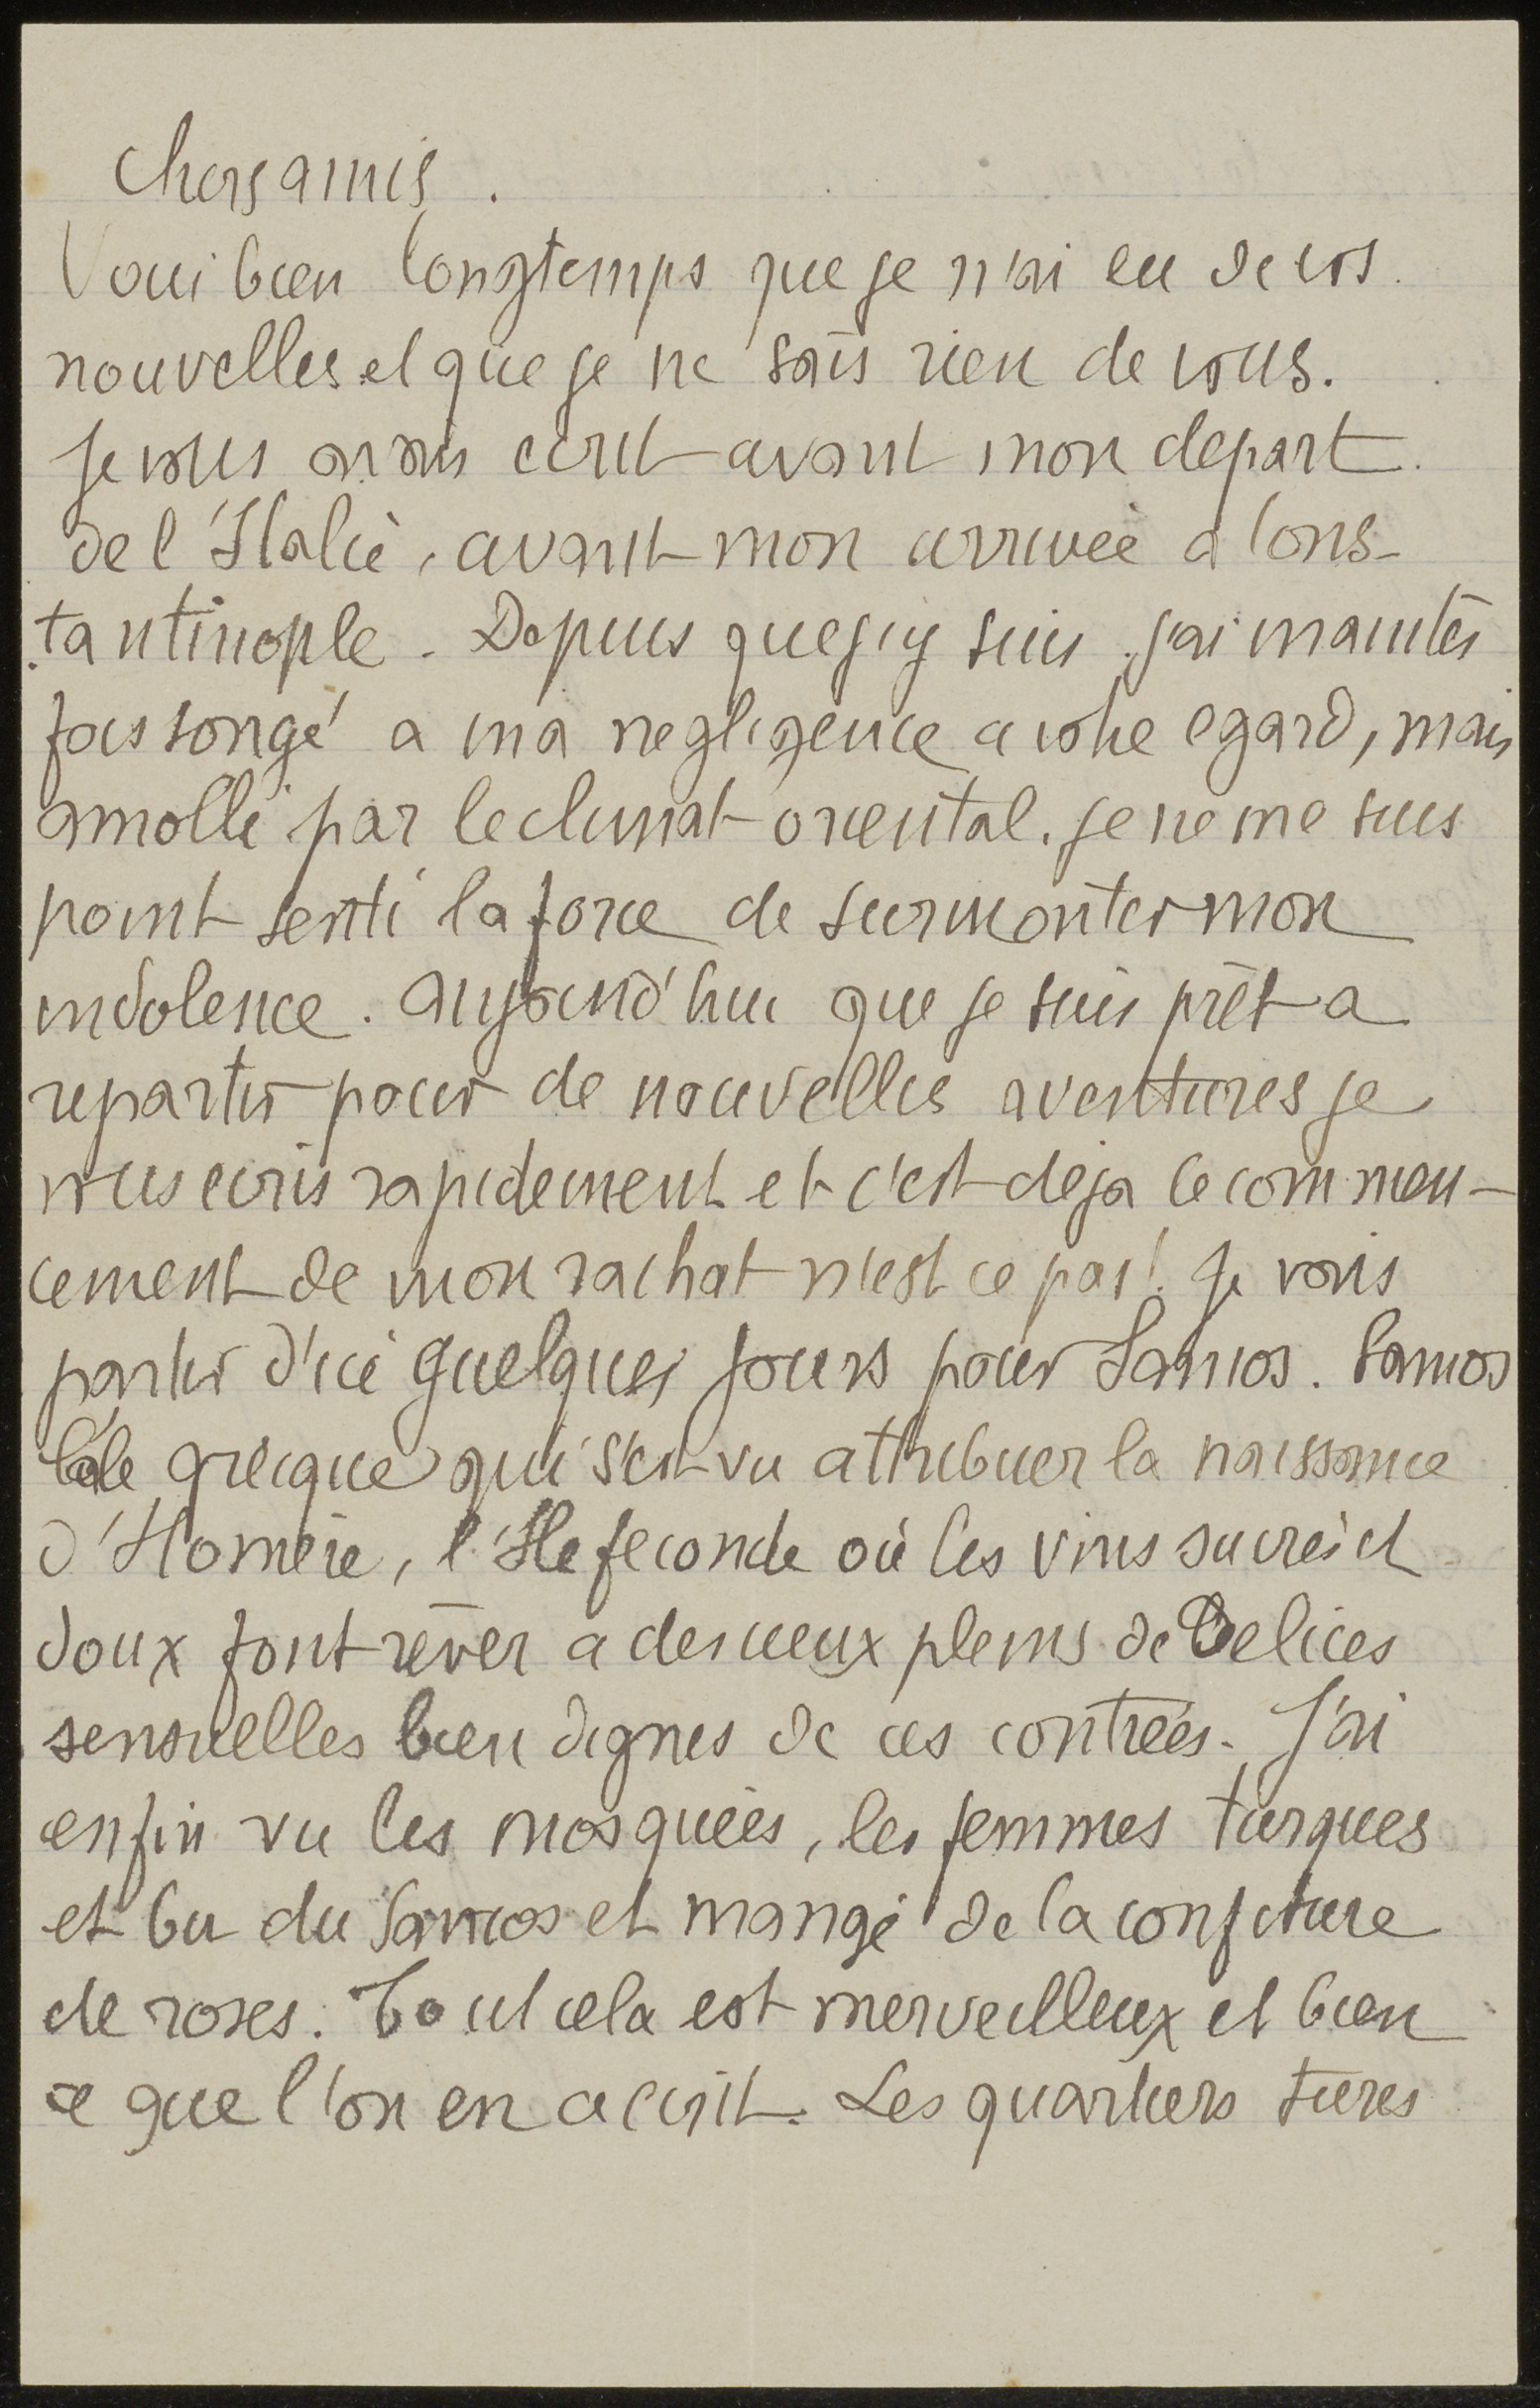 Chers amis.
Voici bien longtemps que je n'ai eu de vos
nouvelles et que je ne sais rien de vous.
Je vous avais ecrit avant mon depart
de l'Italie, avant mon arrivée a Cons-
tantinople. Depuis que j'y suis j'ai maintes
fois songé a ma negligence a votre egard, mais
amolli par le climat oriental. je ne me suis
point senti la force de surmonter mon
indolence. Aujourd'hui que je suis prêt a
repartir pour de nouvelles aventures je
vous ecris rapidement et c'est deja le commen-
cement de mon rachat n'est ce pas! Je vais
partir d'ici quelques jours pour Samos. Samos
l'ile grecque qui s'est vu attribuer la naissance
d'Homère, l'Ile feconde où les vins sucrés et
doux font rêver a des cieux pleins de Delices
sensuelles bien dignes de ces contrées. J'ai
enfin vu les mosquées, les femmes turques
et bu du Samos et mangé de la confiture
de roses. Tout cela est merveilleux et bien
ce que l'on en a écrit. Les quartiers turcs